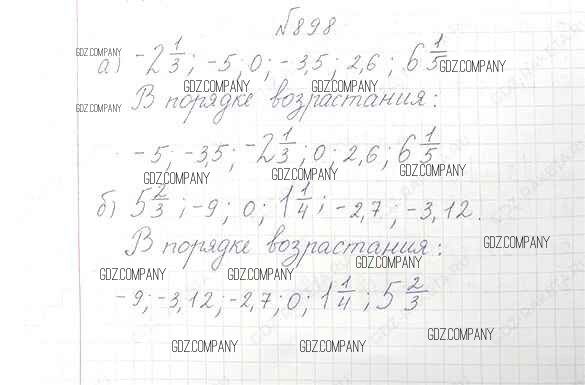 №898
GDZ.COMPANY
а) -2 1/3; -5; 0; -3,5; 2,6; 6 1/5
GDZ.COMPANY
GDZ.COMPANY GDZ.COMPANY
GDZ.COMPANY
В порядке возрастания:
-5; -3,5; -2 1/3; 0; 2,6; 6 1/5
GDZ.COMPANY GDZ.COMPANY GDZ.COMPANY
б) 5 2/3; -9; 0; 1 1/4; -2,7; -3,12.
GDZ.COMPANY
В порядке возрастания:
GDZ.COMPANY GDZ.COMPANY GDZ.COMPANY
-9; -3,12; -2,7; 0; 1 1/4; 5 2/3
GDZ.COMPANY GDZ.COMPANY GDZ.COMPANY